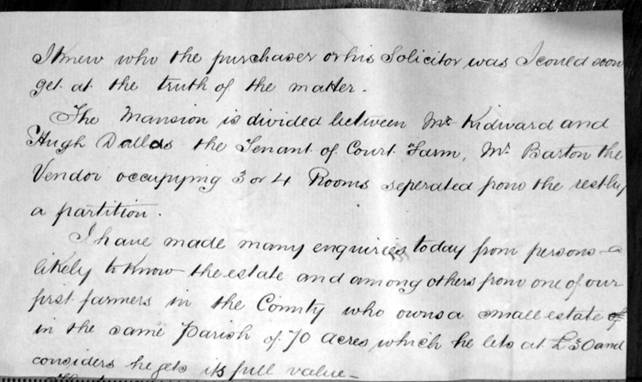 I knew who the purchaser or his Solicitor was I could soon
get at the truth of the matter.
The Mansion is divided between Mr Kidward and
Hugh Dallas the Tenant of Court Farm, Mr Barton the
Vendor occupying 3 or 4 Rooms seperated from the rest by
a partition.
I have made many enquiries today from persons
likely to know the estate and among others from one of our
first farmers in the County who owns a small estate of
in the same Parish of 70 acres which he lets at £50 and
considers he gets its full value -